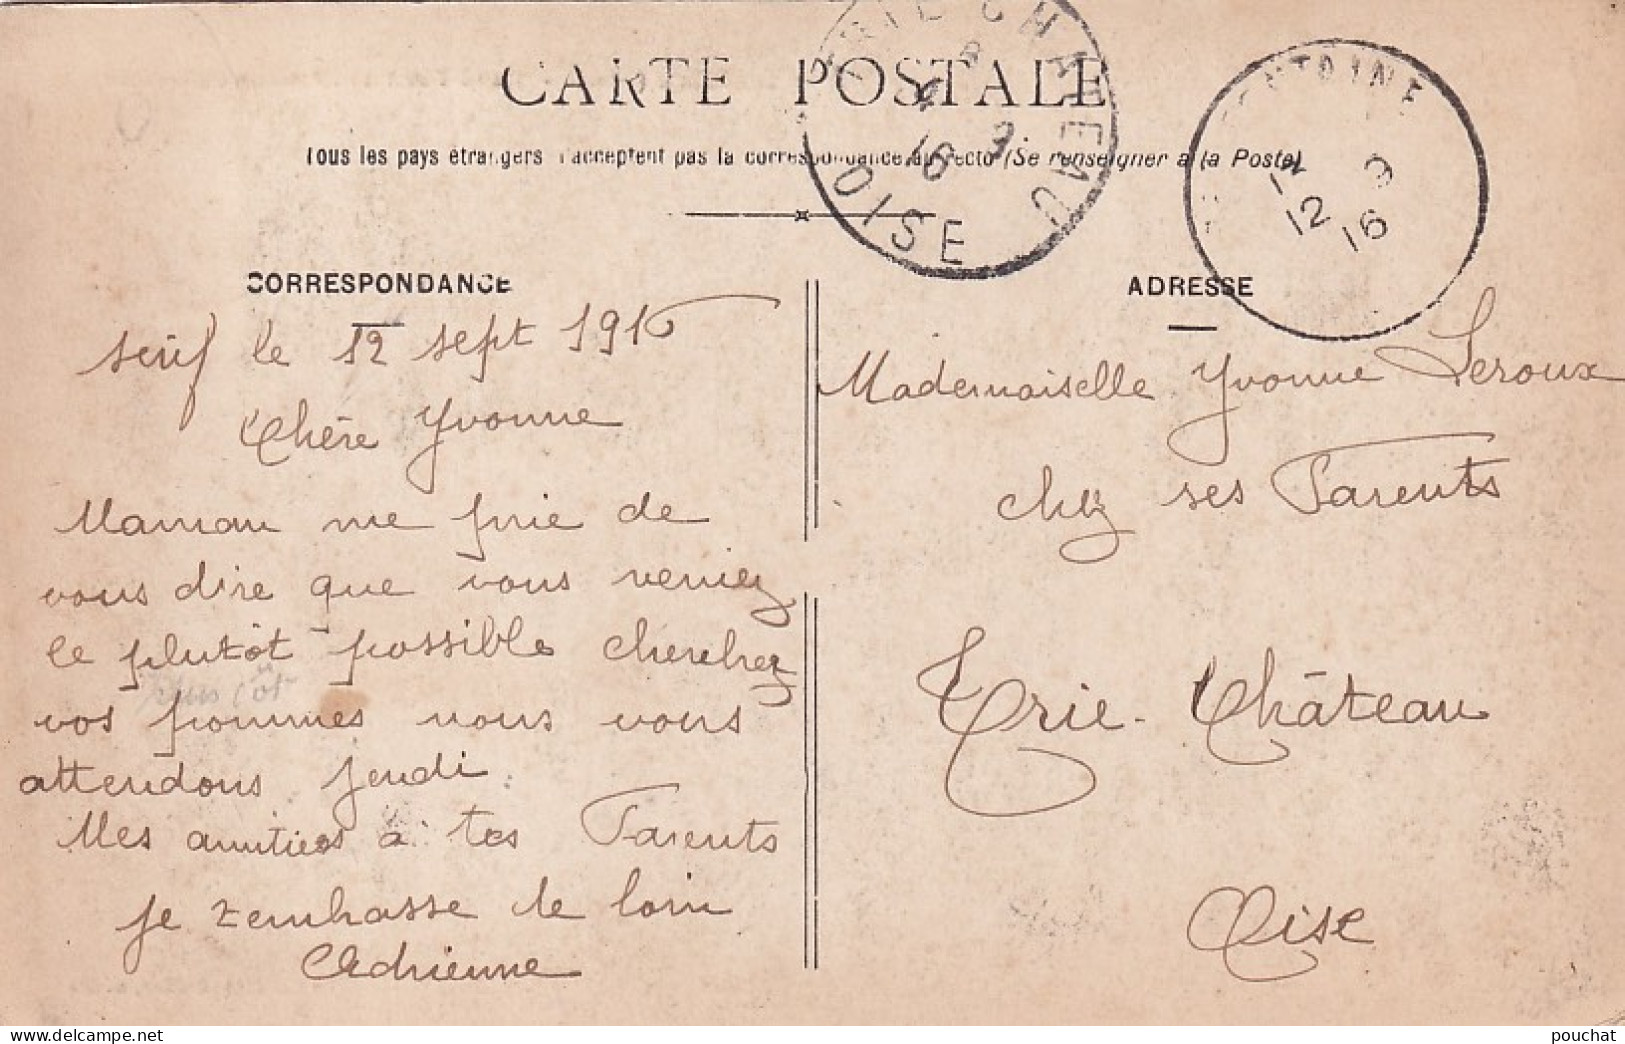 CARTE POSTALE
Tous les pays étrangers n'acceptent pas la correspondance au recto (Se renseigner à la Poste)
TRIE CHATEAU
OISE
12 9
16
CORRESPONDANCE
ADRESSE
le 12 sept 1916
Chère Yvonne
Maman me prie de
vous dire que vous veniez
le plutôt possible cherchez
plus tôt
vos pommes nous vous
attendons jeudi
Mes amitiés à tes Parents
je t'embrasse de loin
Adrienne
Mademoiselle Yvonne Leroux
chez ses Parents
Trie-Château
Oise
pouchat